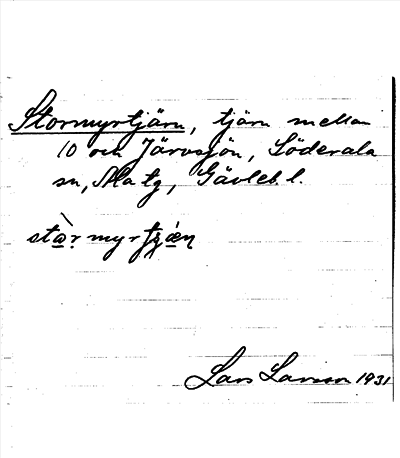 Stormyrtjärn, tjärn mellan
10 och Järvsjön, Söderala
sn, Ala tg, Gävleb. l.
stàrmyrtjǽn
Lars Larsson 1931